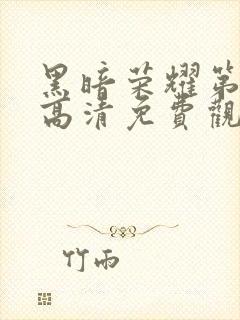 黑暗荣耀第
高清免費觀
竹雨